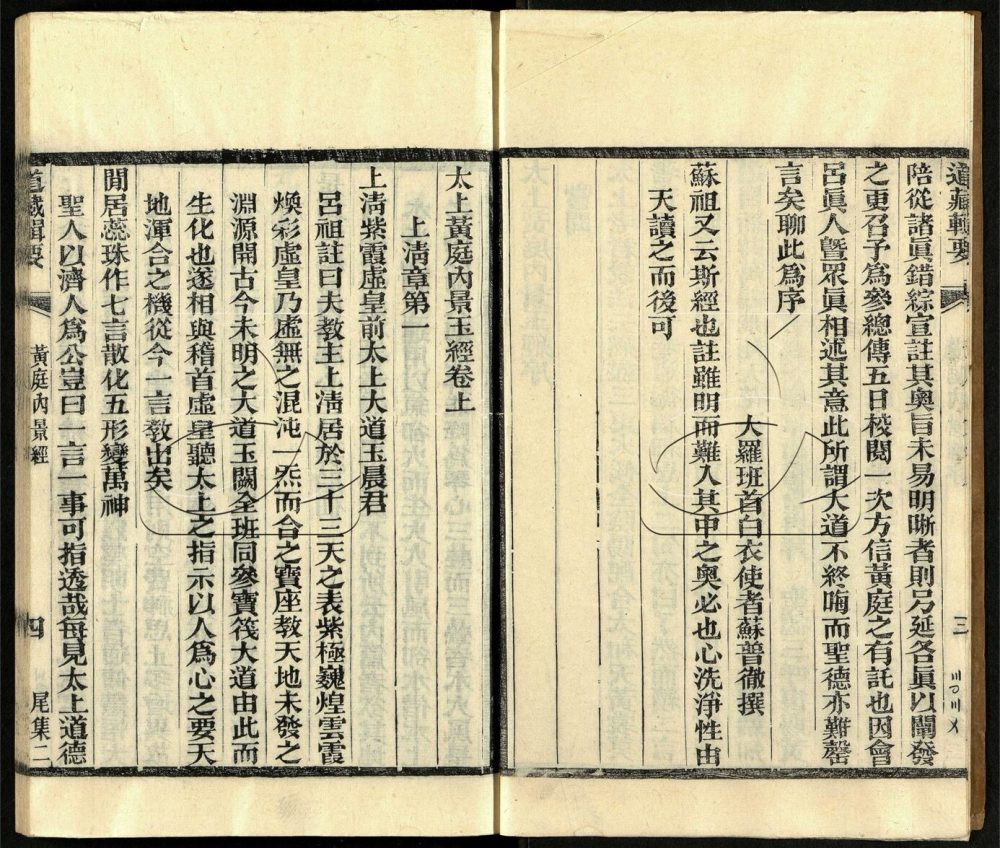 道藏輯要
三
陪從諸眞錯綜宣註其奧旨未易明晰者則另延各眞以闡發
之更召予爲參總傳五日校閱一次方信黃庭之有託也因會
呂眞人曁眾眞相述其意此所謂大道不終晦而聖德亦難罄
言矣聊此爲序
大羅班首白衣使者蘇普徹撰
蘇祖又云斯經也註雖明而難入其中之奧必也心洗淨性由
天讀之而後可
太上黃庭內景玉經卷上
上淸章第一
上淸紫霞虛皇前太上大道玉晨君
呂祖註曰夫敎主上淸居於三十三天之表紫極巍煌雲霞
煥彩虛皇乃虛無之混沌一炁而合之寶座教天地未發之
淵源開古今未明之大道玉闕全班同參寶筏大道由此而
生化也遂相與稽首虛皇聽太上之指示以人爲心之要天
地渾合之機從今一言敎出矣
閒居蕊珠作七言散化五形變萬神
聖人以濟人爲公豈曰一言一事可指透哉每見太上道德
道藏輯要
黃庭內景經
四
尾集二